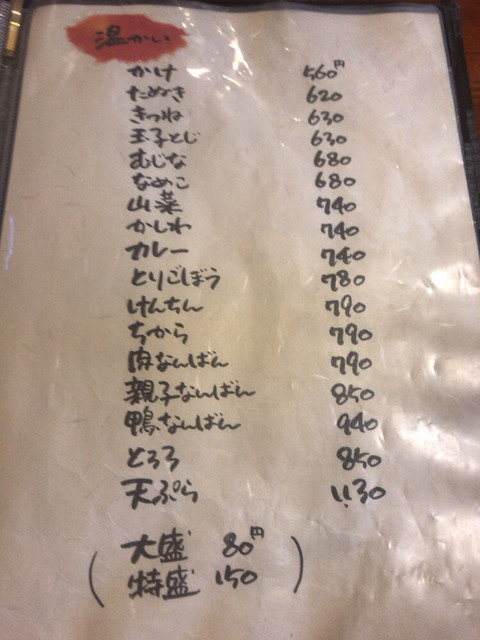 温かい
かけ 560円
たぬき 620
きつね 630
玉子とじ 630
むじな 680
なめこ 680
山菜 740
かしわ 740
カレー 740
とりごぼう 780
けんちん 790
ちから 790
肉なんばん 790
親子なんばん 850
鴨なんばん 940
とろろ 850
天ぷら 1,130
(大盛 80円
特盛 150)